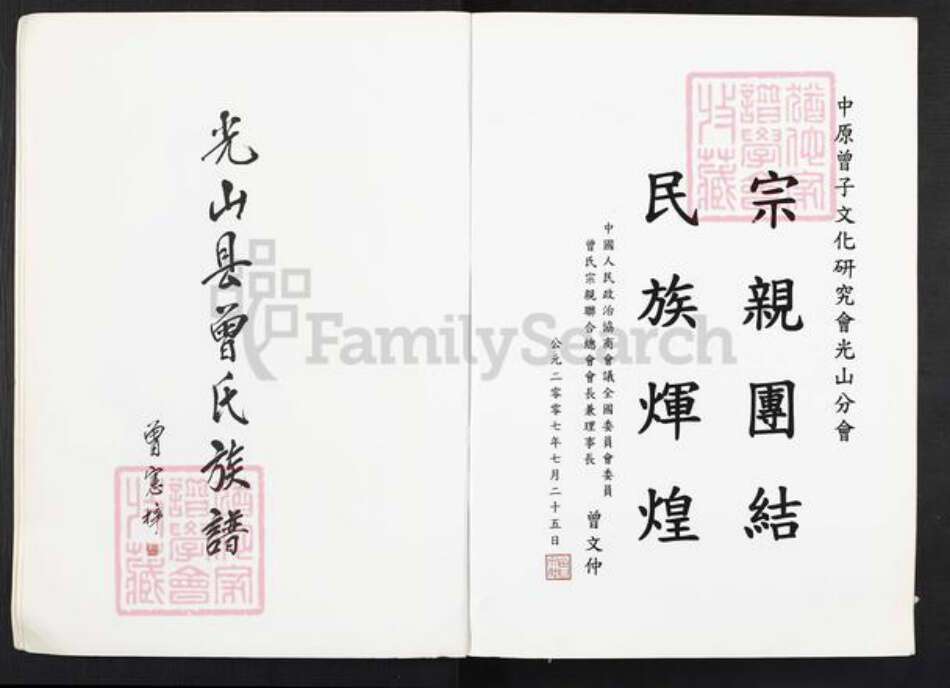 中原曾子文化研究會光山分會
宗親團結
民族輝煌
中國人民政治協商會議全國委員會委員
曾氏宗親聯合總會會長兼理事長
曾文仲
公元二零零七年七月二十五日
光山县曾氏族譜
曾憲梓
FamilySearch